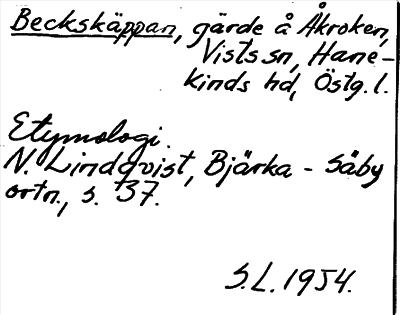 Beckskäppan, gärde å Åkroken,
Vists sn, Hane-
kinds hd, Östg. l.
Etymologi.
N. Lindqvist, Bjärka - Säby
ortn., s. 37.
S.L. 1954.